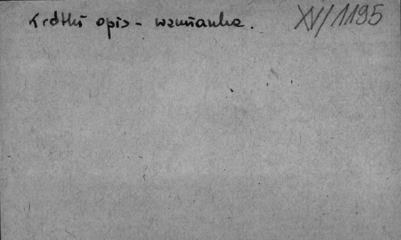 Krótki opis - wzmianka.
XV/1195